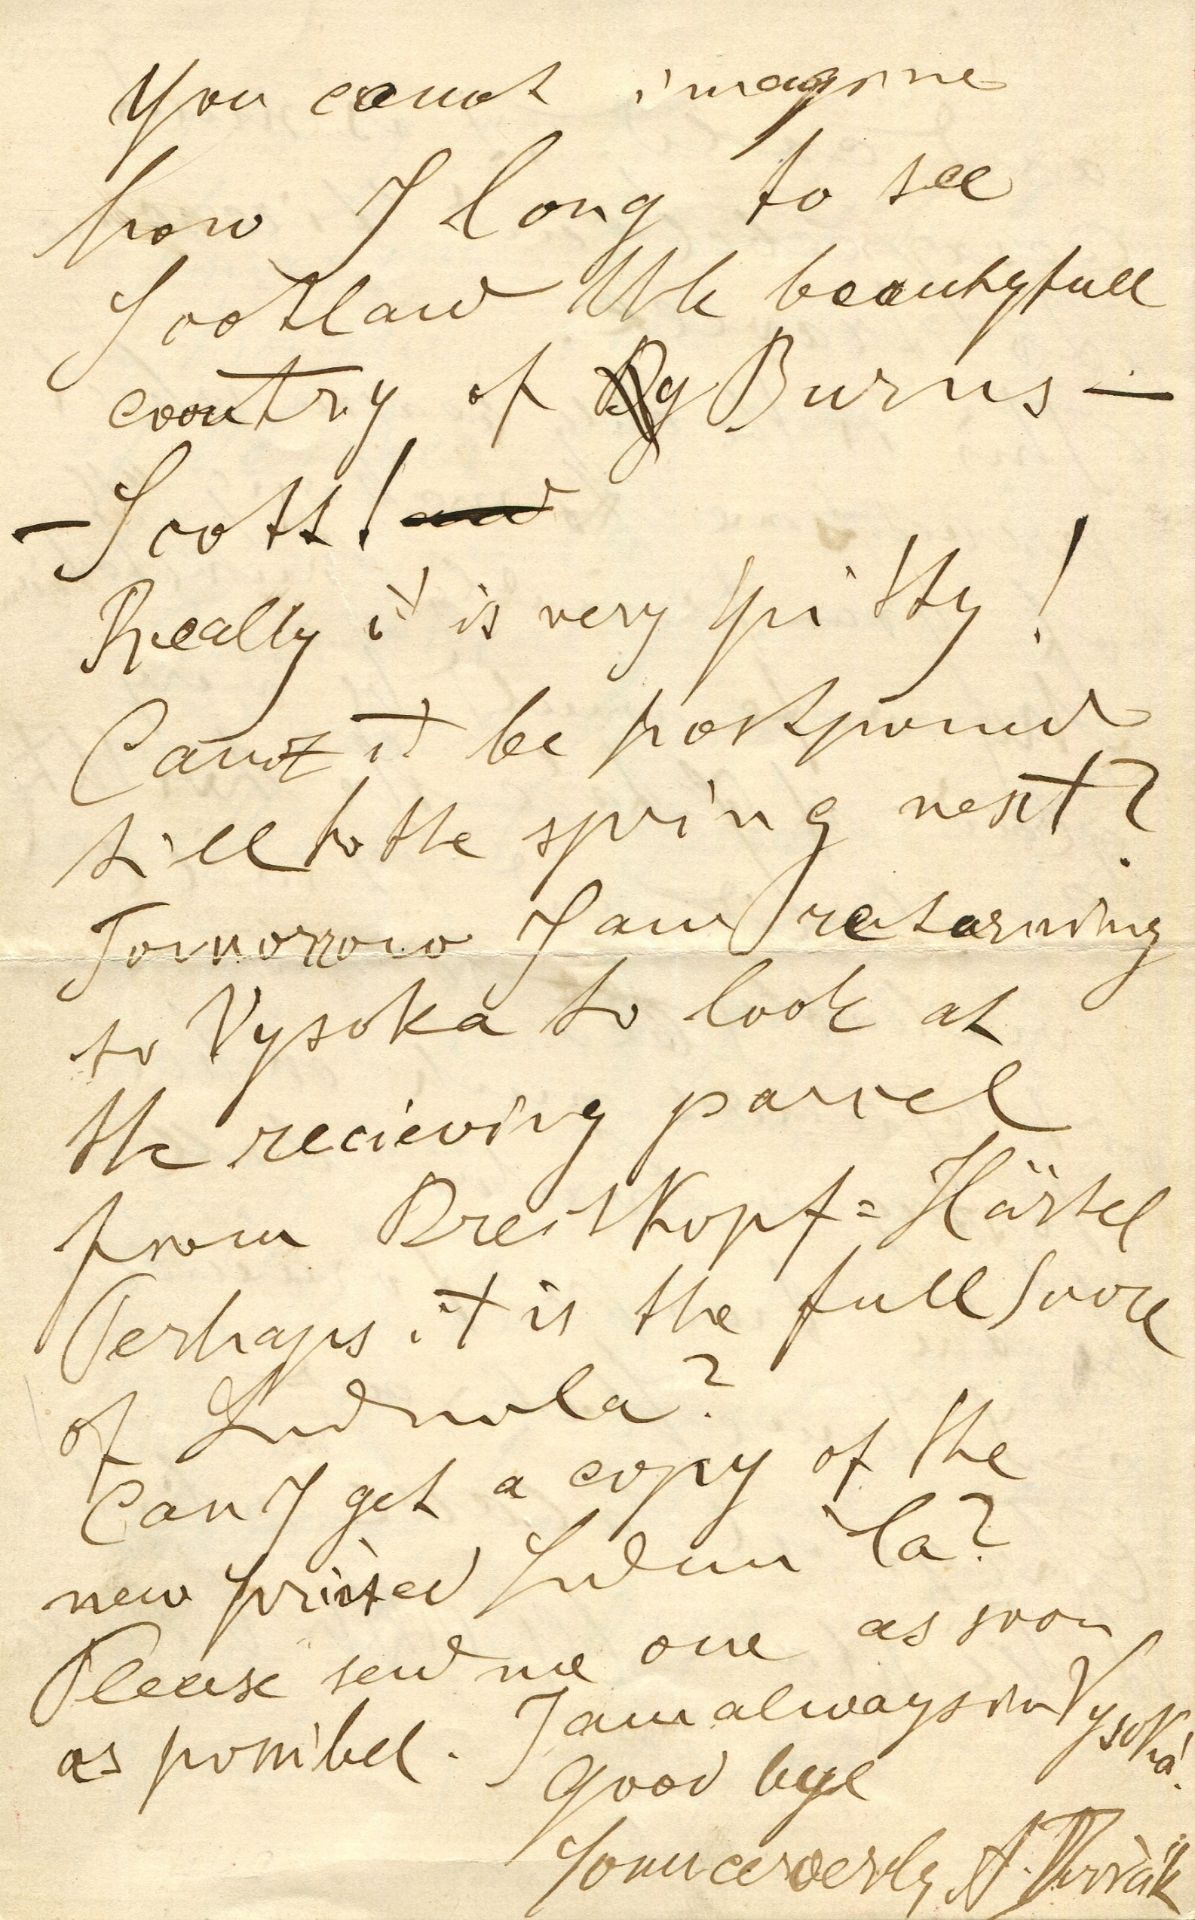 You cannot imagine
how I long to see
Scotland the beautyfull
country of By Burns —
— Scott! and
Really it is very pitty!
Cannot it be postponed
till to the spring next?
Tomorrow I am returning
to Vysoka to look at
the recieving parcel
from Breitkopf = Härtel
Perhaps it is the full Score
of Ludmila?
Can I get a copy of the
new printed Ludmila?
Please send me one as soon
as possibel. I am always in Vysoká.
Good bye
A. Dvořák